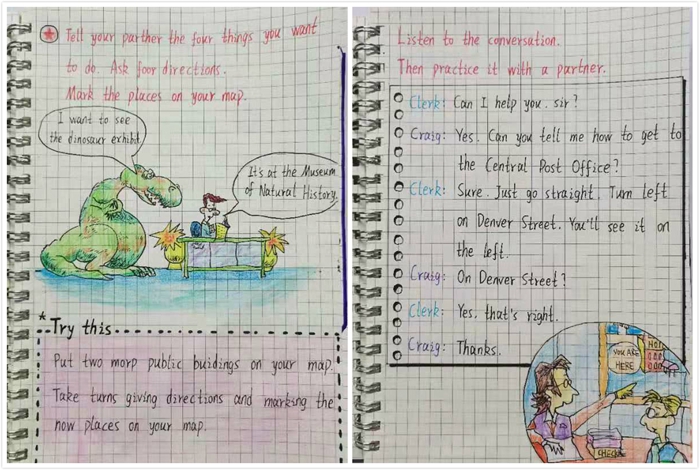 Tell your parther the four things you want
to do. Ask foor directions.
Mark the places on your map.
I want to see
the dinosaur exhibit
It's at the Museum
of Natural History.
Try this
Put two morp public buidings on your map.
Take turns giving directions and marking the
now places on your map.
Listen to the conversation.
Then practice it with a partner.
Clerk: Can I help you. sir?
Craig: Yes. Can you tell me how to get to
the Central Post Office?
Clerk: Sure. Just go straight. Turn left
on Denver Street. You'll see it on
the left.
Craig: On Denver Street?
Clerk: Yes. that's right.
Craig: Thanks.
YOU ARE
HERE
HOT
CHECK